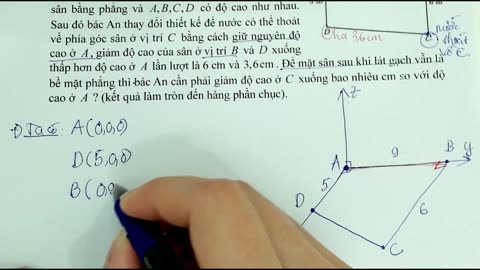 sân bằng phẳng và A, B, C, D có độ cao như nhau.
Sau đó bác An thay đổi thiết kế để nước có thể thoát
về phía góc sân ở vị trí C bằng cách giữ nguyên độ
cao ở A, giảm độ cao của sân ở vị trí B và D xuống
thấp hơn độ cao ở A lần lượt là 6 cm và 3,6 cm. Để mặt sân sau khi lát gạch vẫn là
bề mặt phẳng thì bác An cần phải giảm độ cao ở C xuống bao nhiêu cm so với độ
cao ở A ? (kết quả làm tròn đến hàng phần chục).
D
C
36cm
nước
thoát
z
1) Ta có: A(0,0,0)
D(5,0,0)
B(0,9
A
9
B
y
5
D
6
C